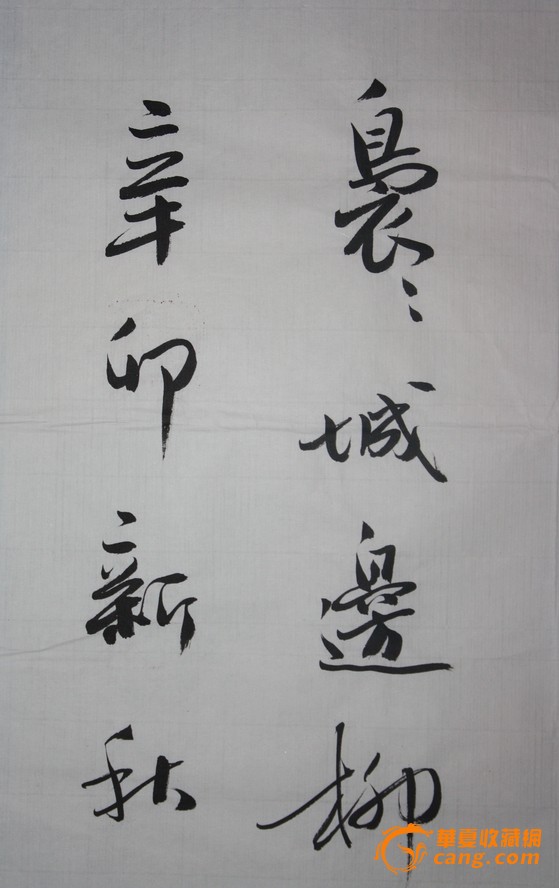 裊〻城邊柳
辛卯新秋
華夏收藏網
cang.com